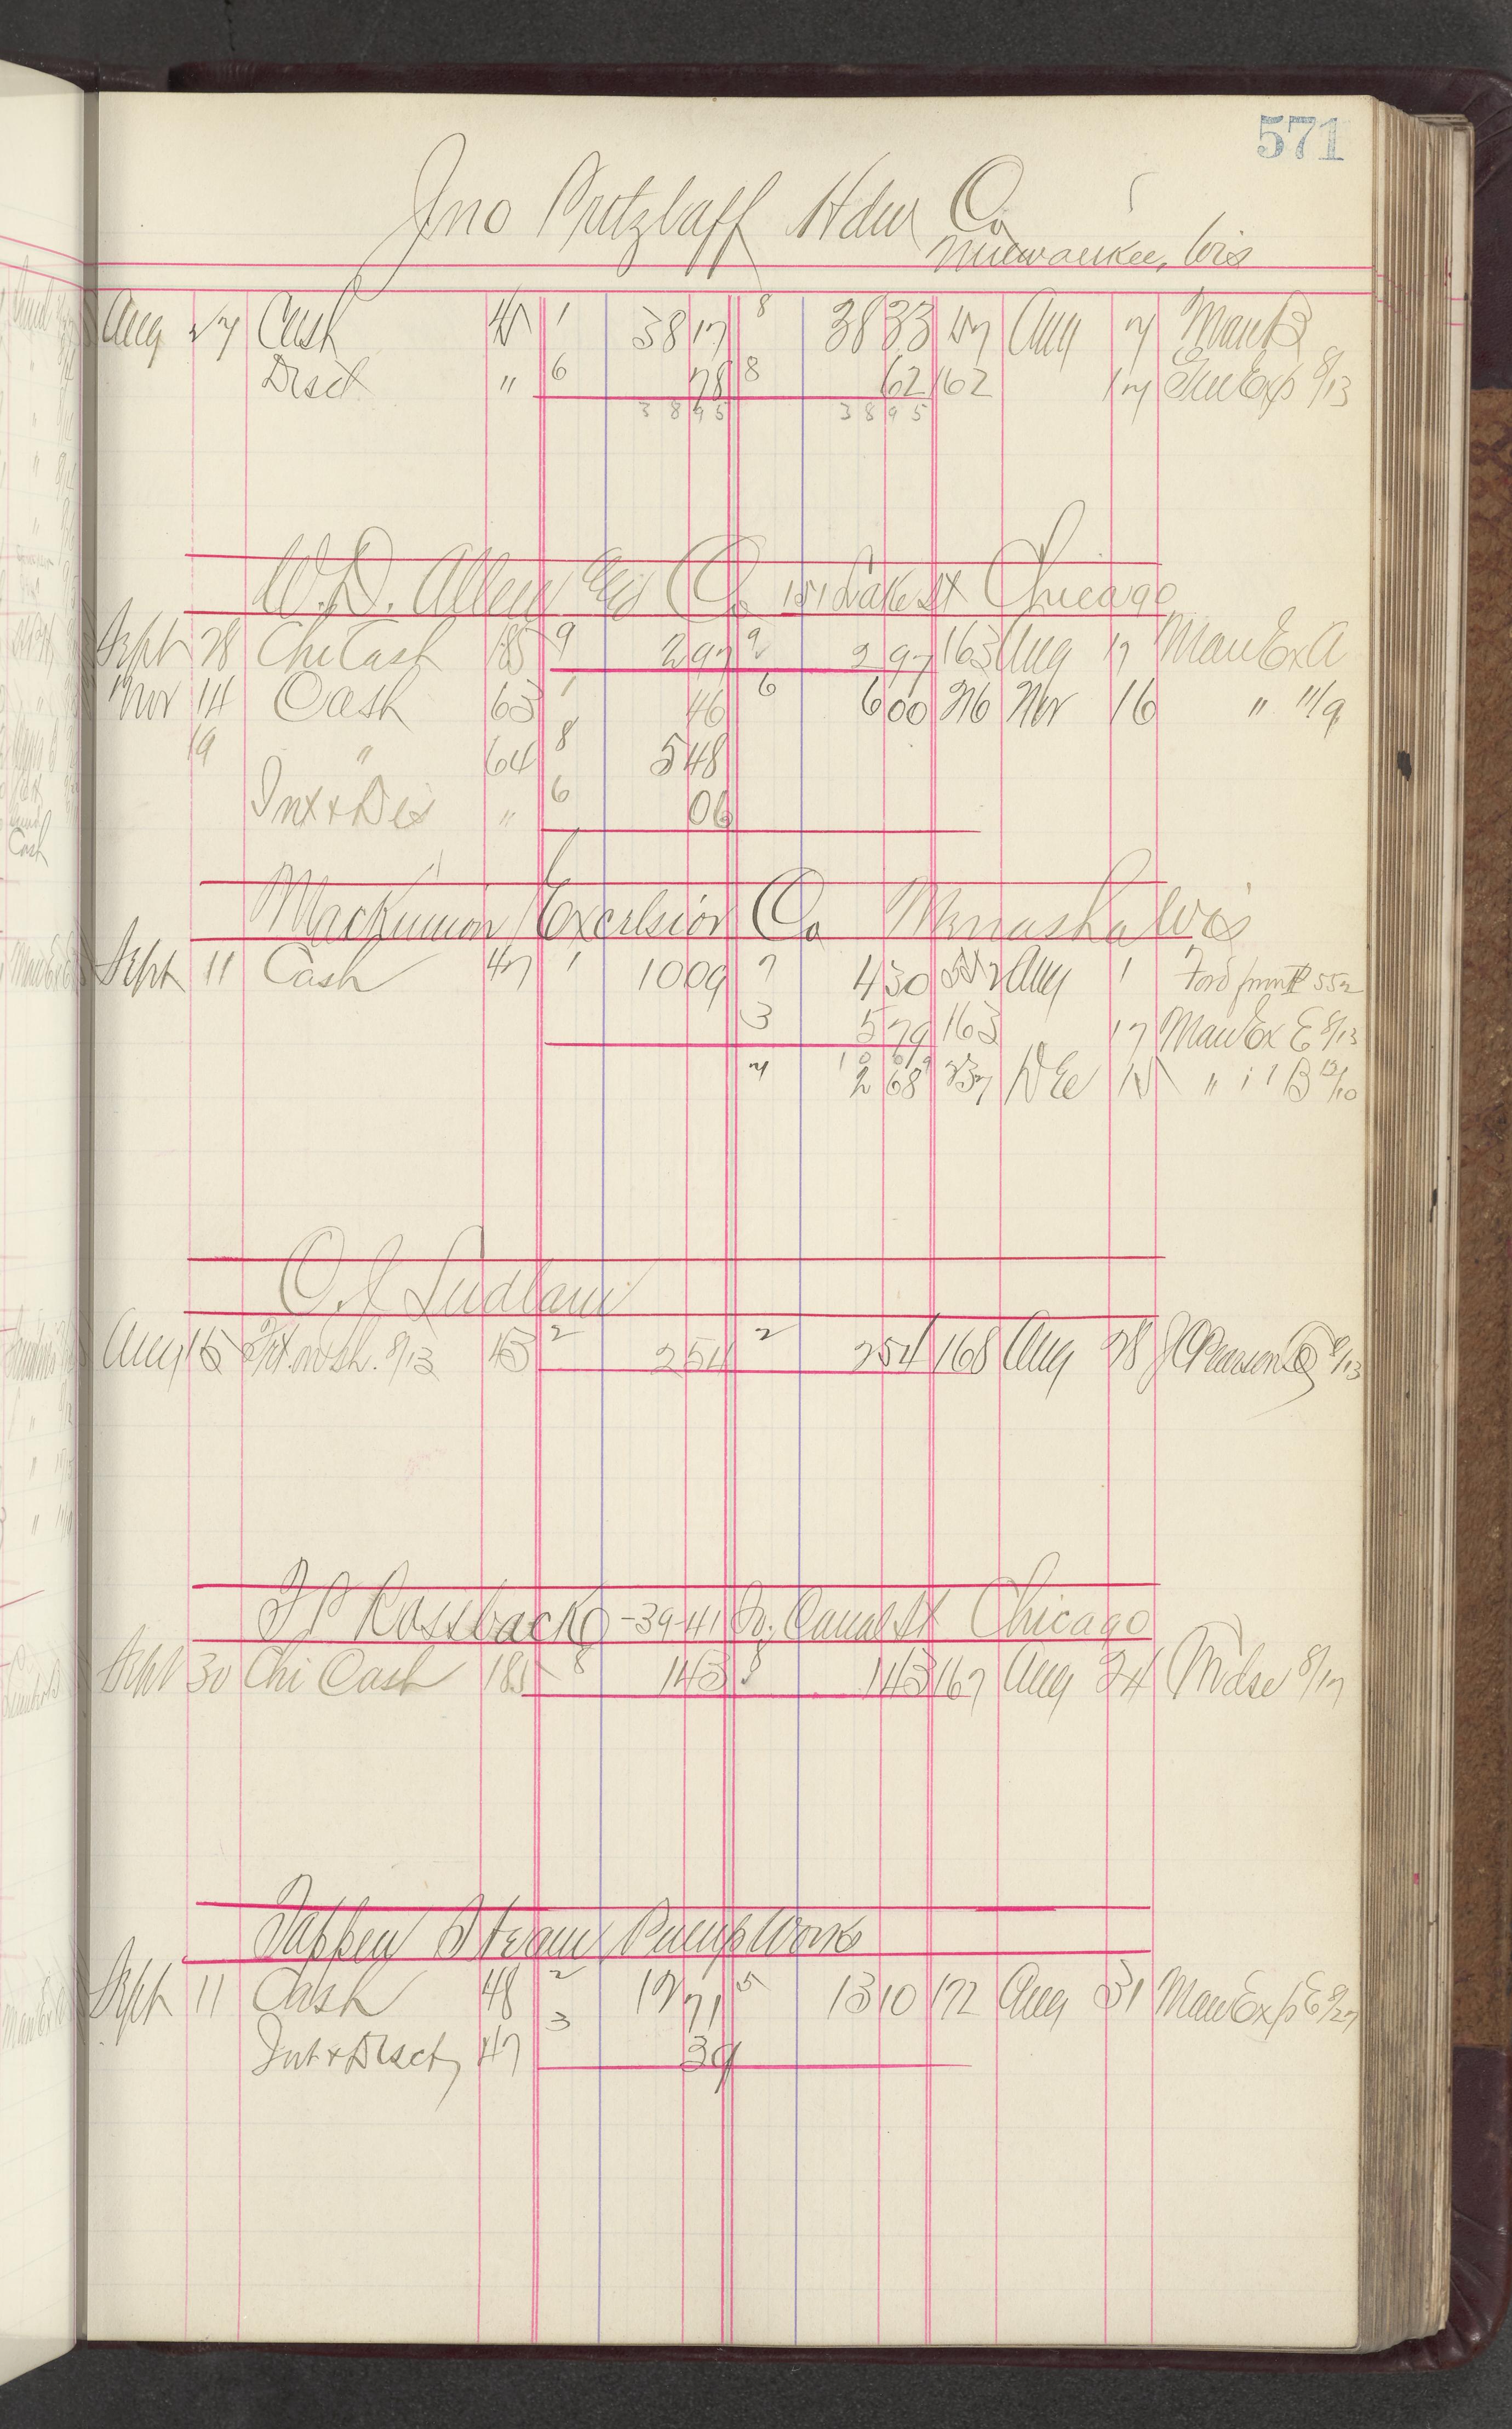 571
Jno Pritzlaff Hdw Co
Milwaukee, Wis
Aug 27 Cash 42 1 38 17 8 38 33 157 Aug 7 Man B
Disct " 6 78 8 62 162 17 Gen Exp 8/13
38 95 38 95
W. D. Allen Mfg Co 151 Lake St Chicago
Sept 28 Chi Cash 185 9 2 97 2 2 97 163 Aug 17 Man Ex A
Nov 14 Cash 63 1 46 6 6 00 216 Nov 16 " 11/9
19 " 64 8 5 48
Int & Dis " 6 06
MacKinnon Excelsior Co Menasha Wis
Sept 11 Cash 47 1 10 09 7 4 30 Aug 1 Ford 552
3 5 79 163 17 Man Ex E 8/13
10 09
7 2 68 237 Dec 12 " " B 12/10
O. J. Ludlam
Aug 15 8/13 43 2 2 54 2 2 54 168 Aug 28 J C Pearson Co 8/13
F P Rossback -39-41 So. Canal St Chicago
Sept 30 Chi Cash 185 8 1 43 8 1 43 167 Aug 24 Mdse 8/17
Tappen Steam Pump Works
Sept 11 Cash 48 2 12 71 5 13 10 172 Aug 31 Man Exp E 8/27
Int & Disct 47 3 39